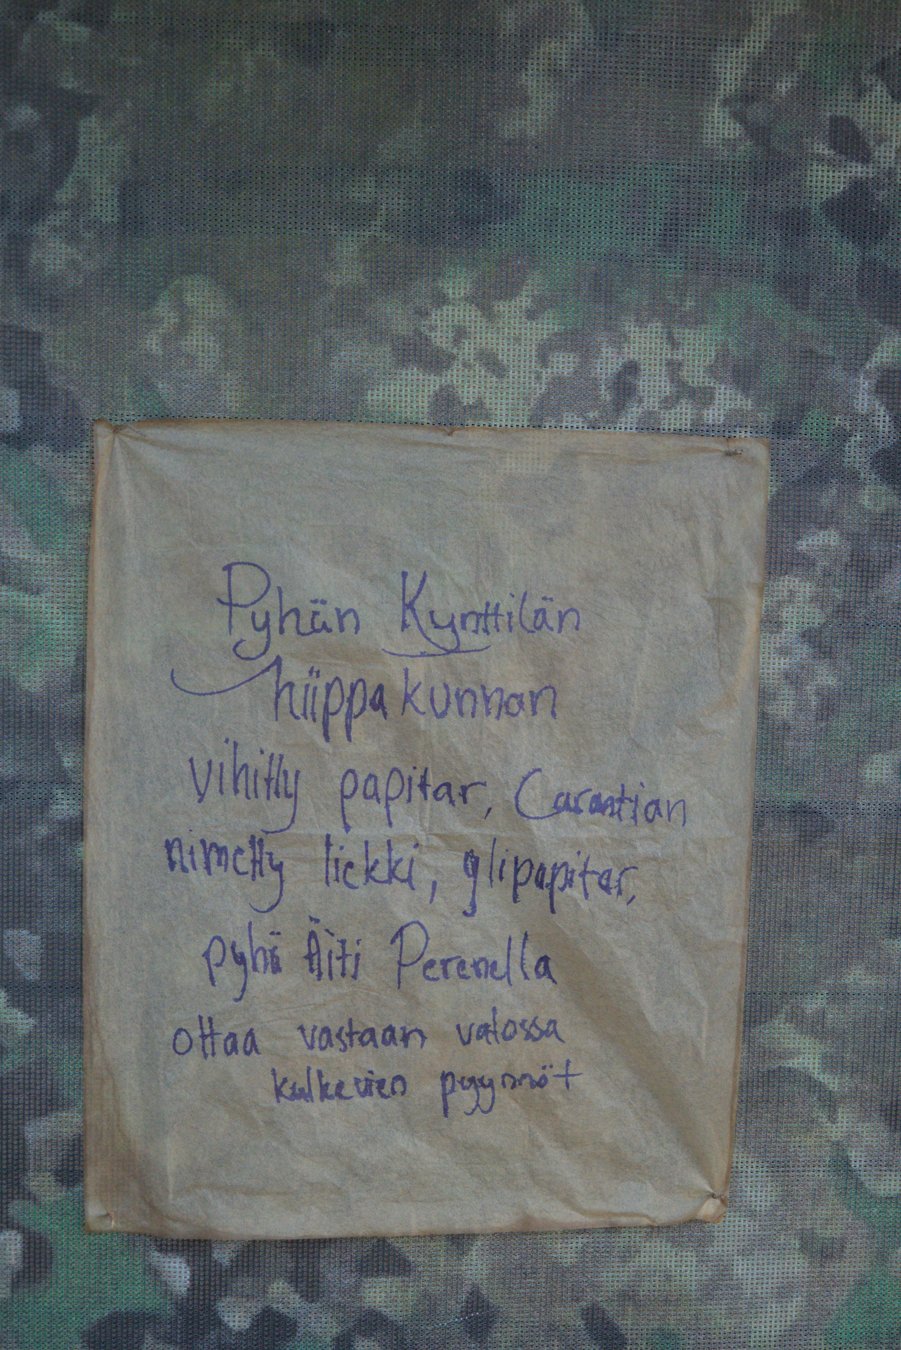 Pyhän Kynttilän
hiippakunnan
vihitty papitar, Carantian
nimetty liekki, ylipapitar,
pyhä Äiti Perenella
ottaa vastaan valossa
kulkevien pyynnöt